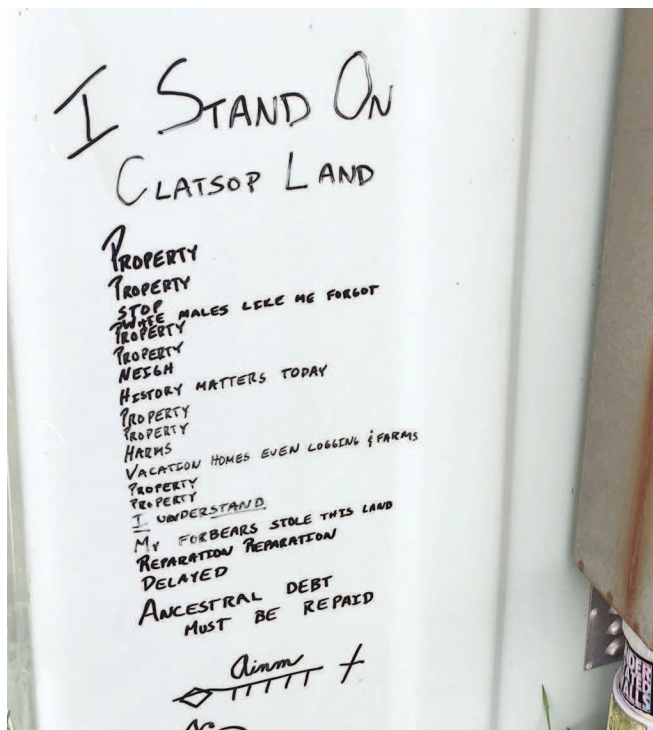 I STAND ON
CLATSOP LAND
PROPERTY
PROPERTY
STOP
WHITE MALES LIKE ME FORGOT
PROPERTY
PROPERTY
NEIGH
HISTORY MATTERS TODAY
PROPERTY
PROPERTY
HARMS
VACATION HOMES EVEN LOGGING & FARMS
PROPERTY
PROPERTY
I UNDERSTAND
MY FORBEARS STOLE THIS LAND
REPARATION REPARATION
DELAYED
ANCESTRAL DEBT
MUST BE REPAID
ainm